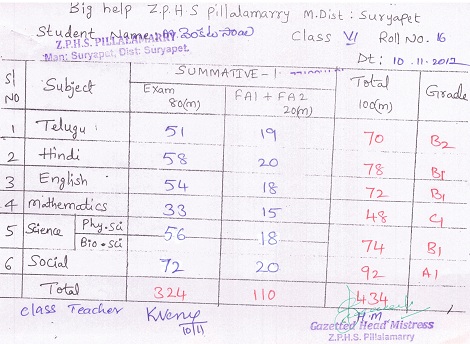 Big help Z.P.H.S Pillalamarry M.Dist: Suryapet
Student Name: Class VI Roll No. 16
Z.P.H.S. PILLALAMARRY
Man: Suryapet, Dist: Suryapet.
Dt: 10.11.2012
Sl NO Subject SUMMATIVE-1 Total 100(m) Grade
Exam 80(m) FA1+FA2 20(m)
1 Telugu 51 19 70 B2
2 Hindi 58 20 78 B1
3 English 54 18 72 B1
4 mathematics 33 15 48 C1
5 Science Phy.sci Bio.sci 56 18 74 B1
6 Social 72 20 92 A1
Total 324 110 434
class Teacher 10/11 H.M
Gazetted Head Mistress
Z.P.H.S. Pillalamarry